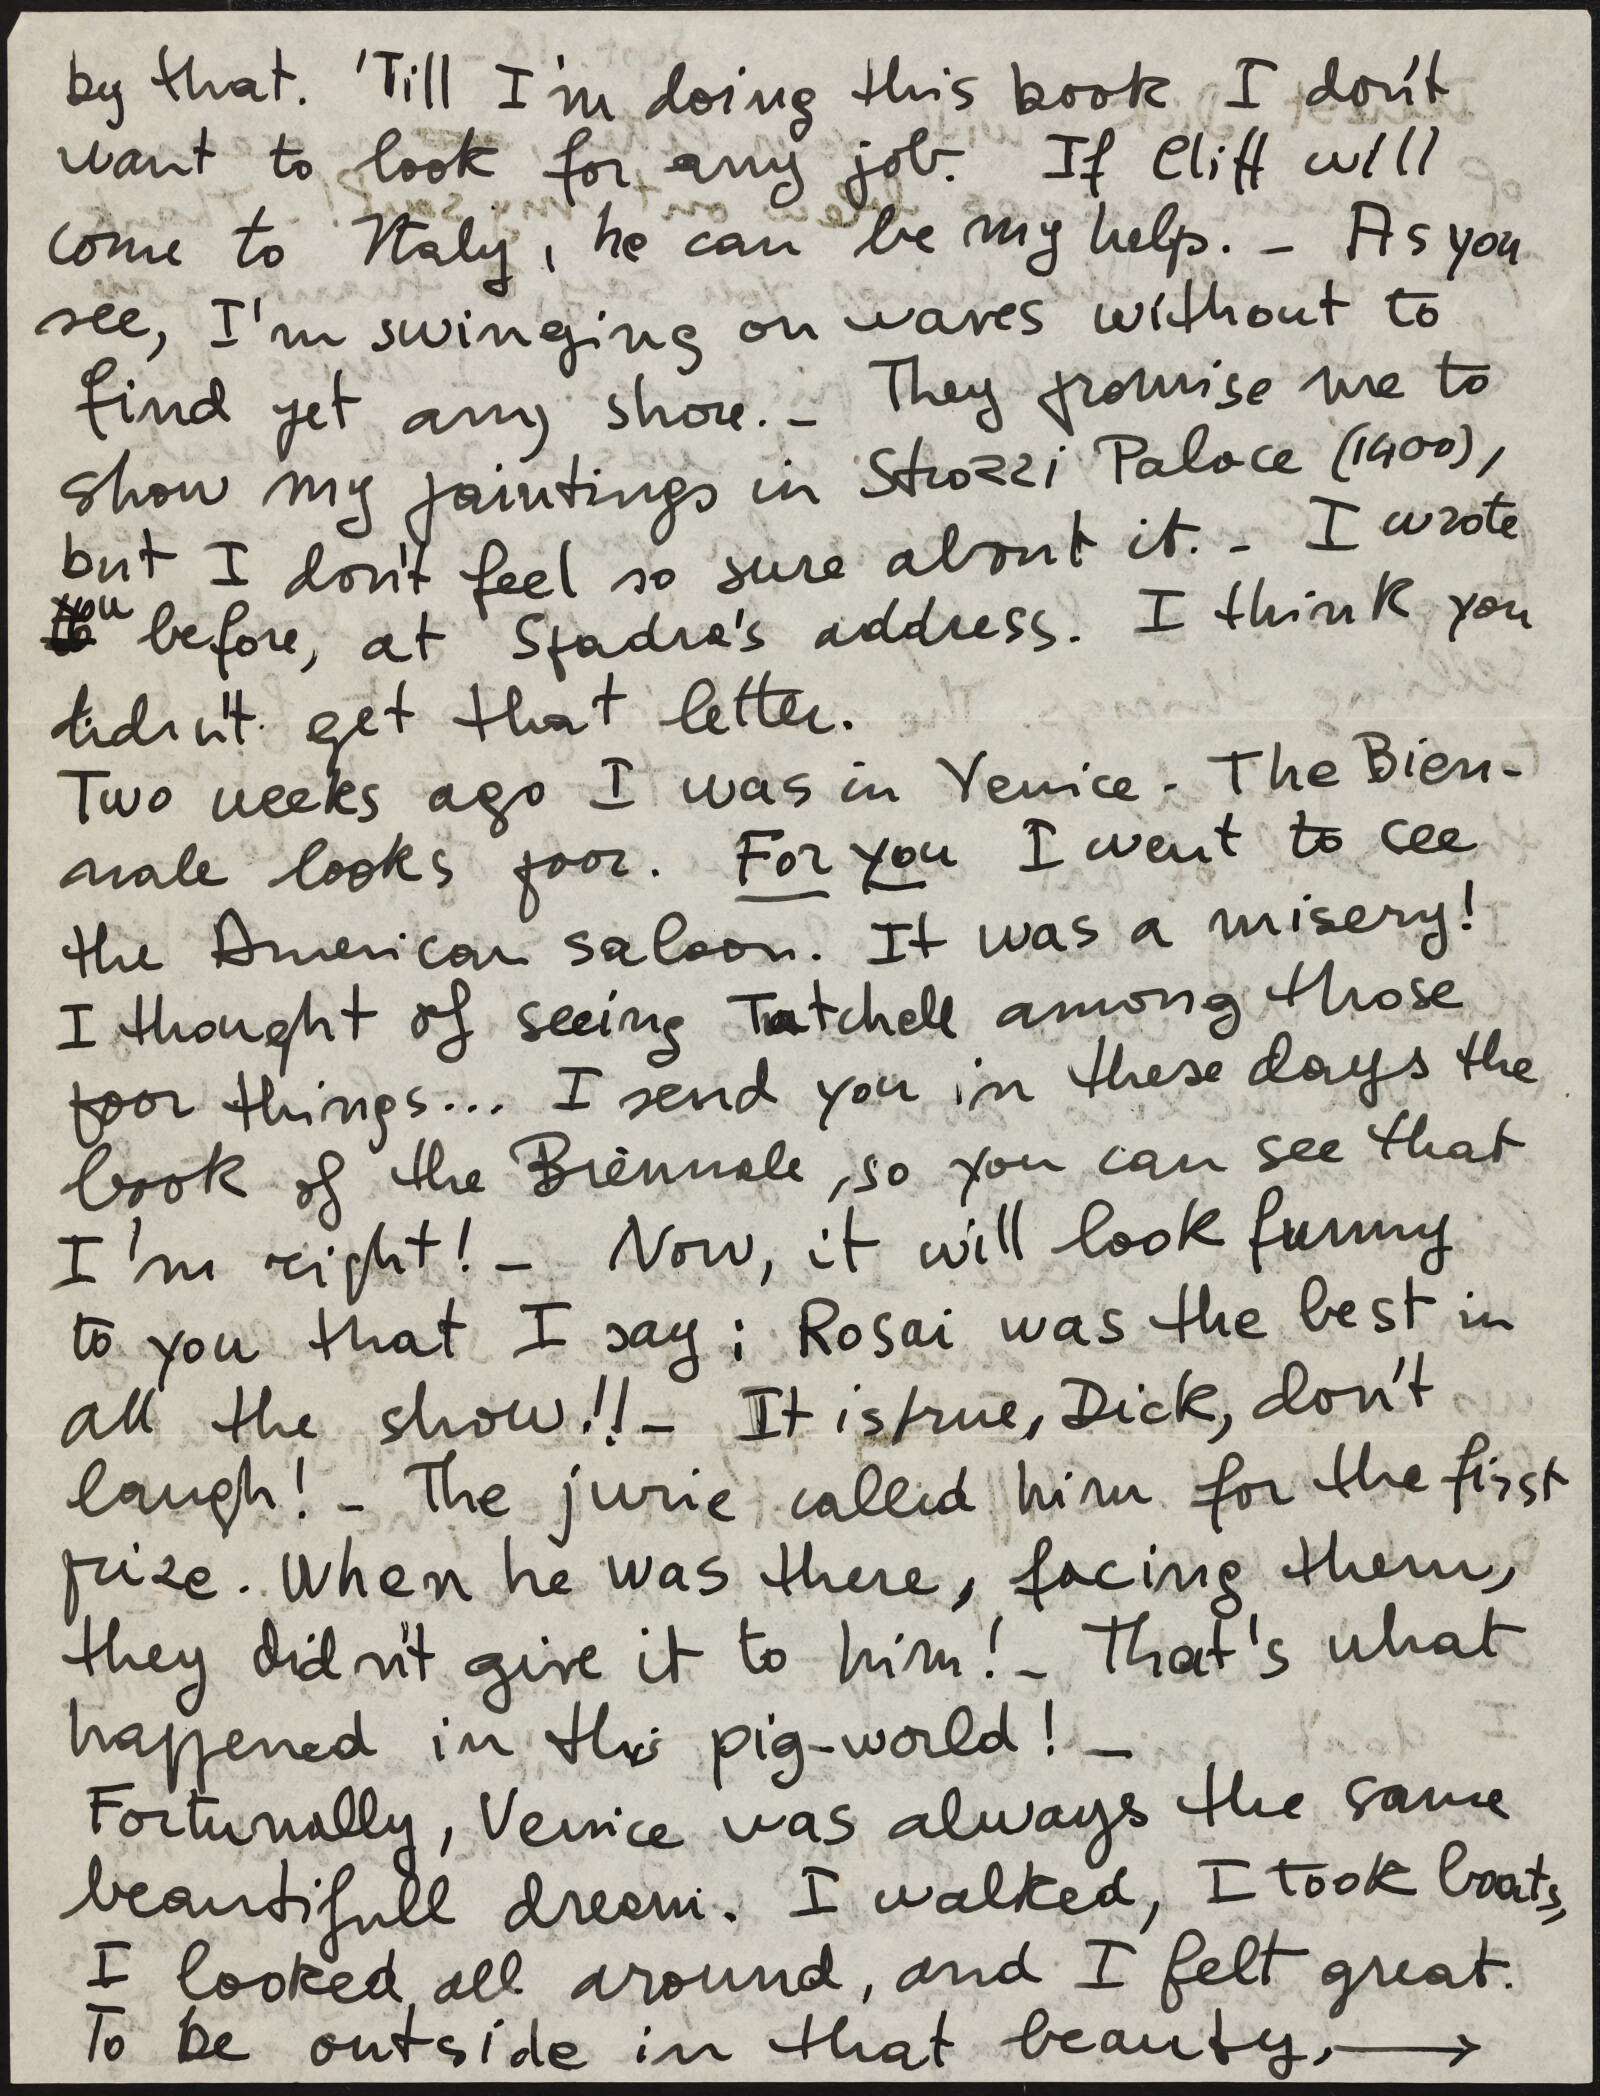 by that. 'Till I'm doing this book I don't
want to look for any job. If Cliff will
come to Italy, he can be my help. – As you
see, I'm swinging on waves without to
find yet any shore. – They promise me to
show my paintings in Strozzi Palace (1400),
but I don't feel so sure about it. – I wrote
you before, at Spadra's address. I think you
didn't get that letter.
Two weeks ago I was in Venice. The Bien-
nale looks poor. For you I went to see
the American saloon. It was a misery!
I thought of seeing Tatchell among those
poor things... I send you in these days the
book of the Biennale, so you can see that
I'm right! – Now, it will look funny
to you that I say: Rosai was the best in
all the show!! – It is true, Dick, don't
laugh! – The jurie called him for the first
prize. When he was there, facing them,
they didn't give it to him! – That's what
happened in this pig-world! –
Fortunally, Venice was always the same
beautifull dream. I walked, I took boats,
I looked all around, and I felt great.
To be outside in that beauty, →